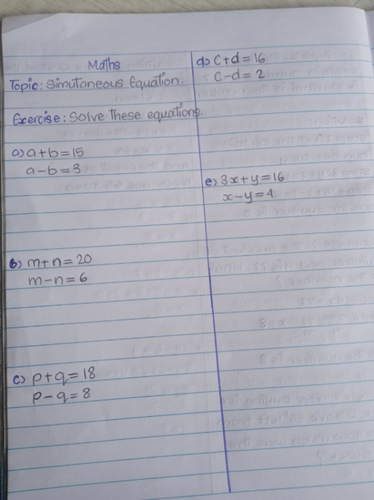 Maths
Topic: Simutaneous Equation.
Exercise: Solve these equations.
a) a+b=15
a-b=3
b) m+n=20
m-n=6
c) p+q=18
p-q=8
d) c+d=16
c-d=2
e) 3x+y=16
x-y=4